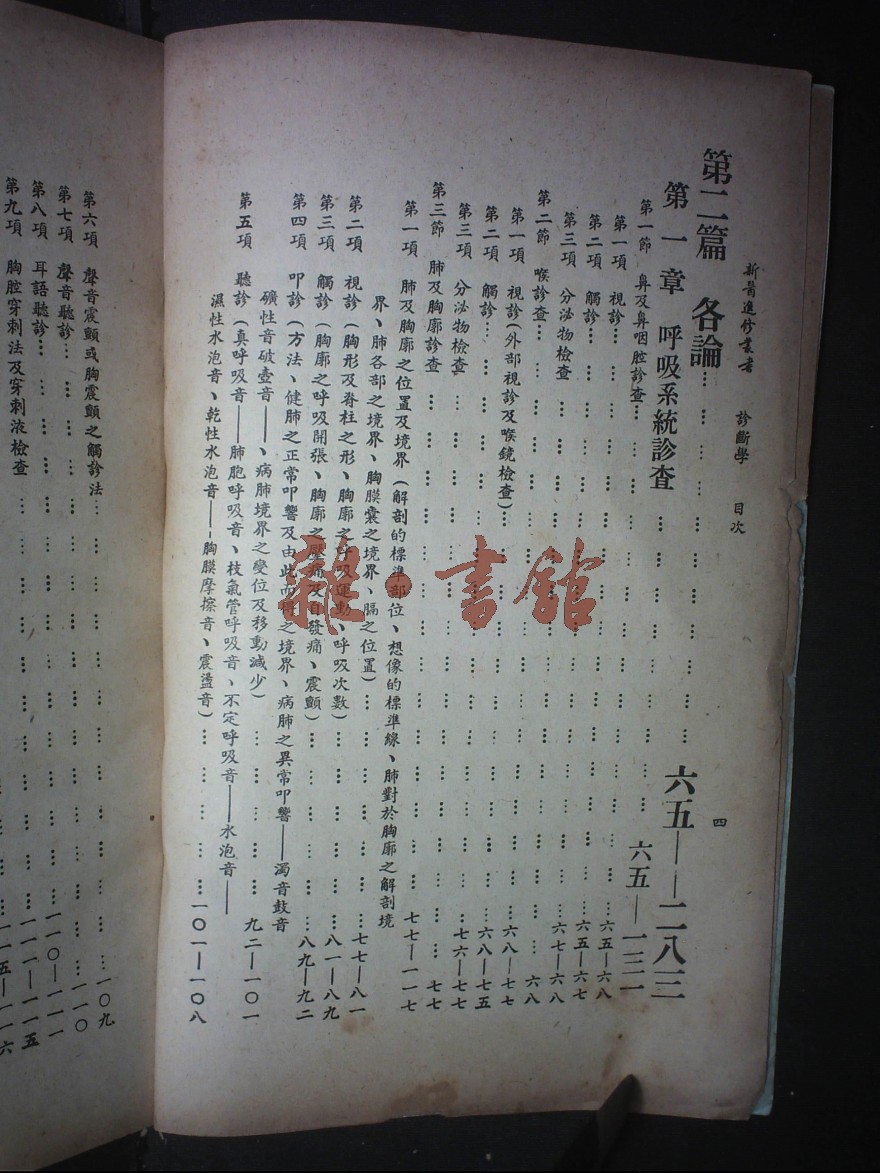 新醫進修叢書　診斷學　目次
四
第二篇　各論……六五——二八三
第一章　呼吸系統診查……六五——一三一
第一節　鼻及鼻咽腔診查……六五—六八
第一項　視診……六五—六七
第二項　觸診……六七—六八
第三項　分泌物檢查……六八
第二節　喉診查……六八—七七
第一項　視診(外部視診及喉鏡檢查)……六八—七五
第二項　觸診……七六—七七
第三項　分泌物檢查……七七
第三節　肺及胸廓診查……七七—一一七
第一項　肺及胸廓之位置及境界(解剖的標準部位、想像的標準線、肺對於胸廓之解剖境
界、肺各部之境界、胸膜囊之境界、膈之位置)……七七—八一
第二項　視診(胸形及脊柱之形、胸廓之呼吸運動、呼吸次數)……八一—八九
第三項　觸診(胸廓之呼吸開張、胸廓之壓痛及自發痛、震顫)……八九—九二
第四項　叩診(方法、健肺之正常叩響及由此而得之境界、病肺之異常叩響——濁音鼓音
礦性音破壺音——、病肺境界之變位及移動減少)……九二—一〇一
第五項　聽診(真呼吸音——肺胞呼吸音、枝氣管呼吸音、不定呼吸音——水泡音——
濕性水泡音、乾性水泡音——胸膜摩擦音、震盪音)……一〇一—一〇八
第六項　聲音震顫或胸震顫之觸診法……一〇九
第七項　聲音聽診……一一〇
第八項　耳語聽診……一一〇—一一一
第九項　胸腔穿刺法及穿刺液檢查……一一一—一一五
一一五—一一六
雜·書館